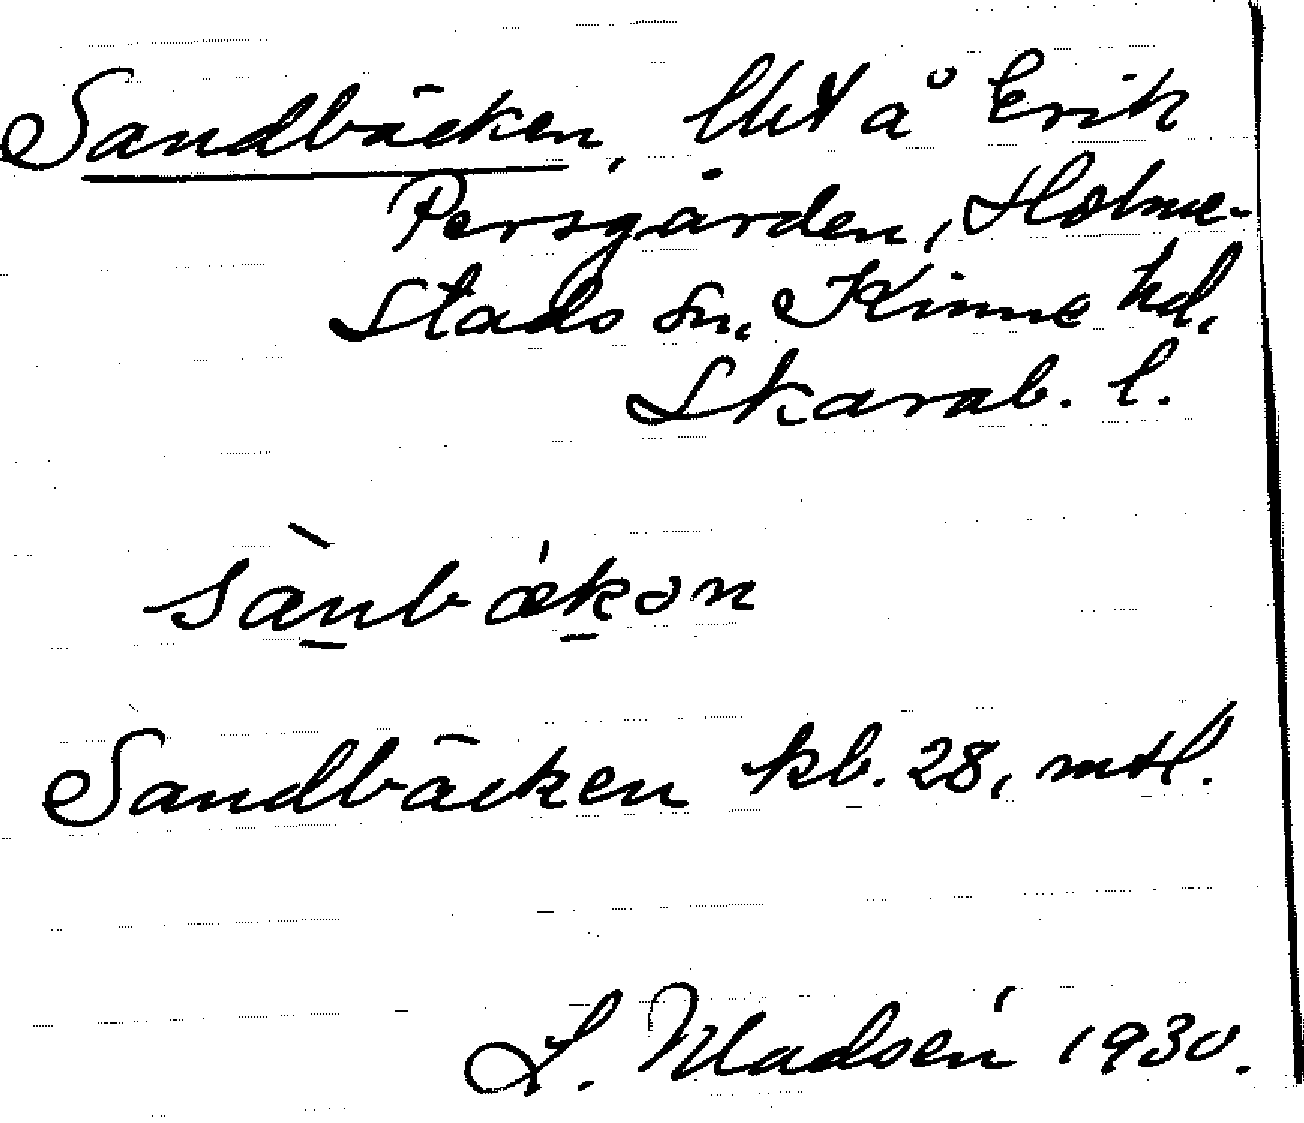 Sandbäcken, lht å Erik
Persgården, Holme-
stads sn, Kinne hd,
Skarab. l.
sànbǽkən
Sandbäcken kb. 28, mtl.
L. Madsén 1930.